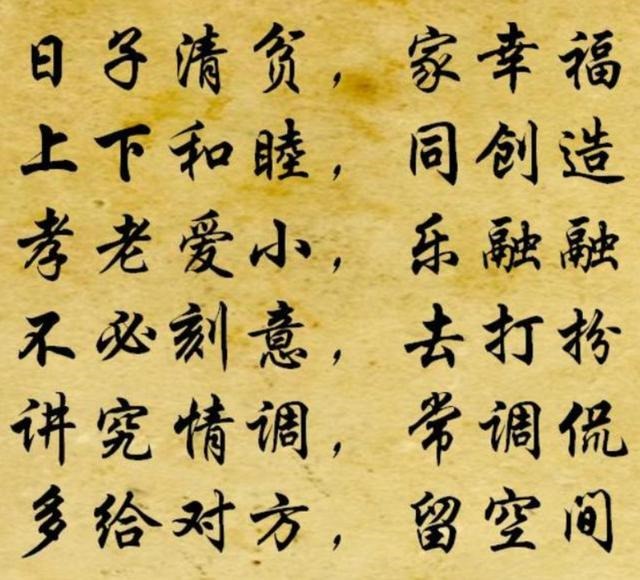 日子清贫，家幸福
上下和睦，同创造
孝老爱小，乐融融
不必刻意，去打扮
讲究情调，常调侃
多给对方，留空间